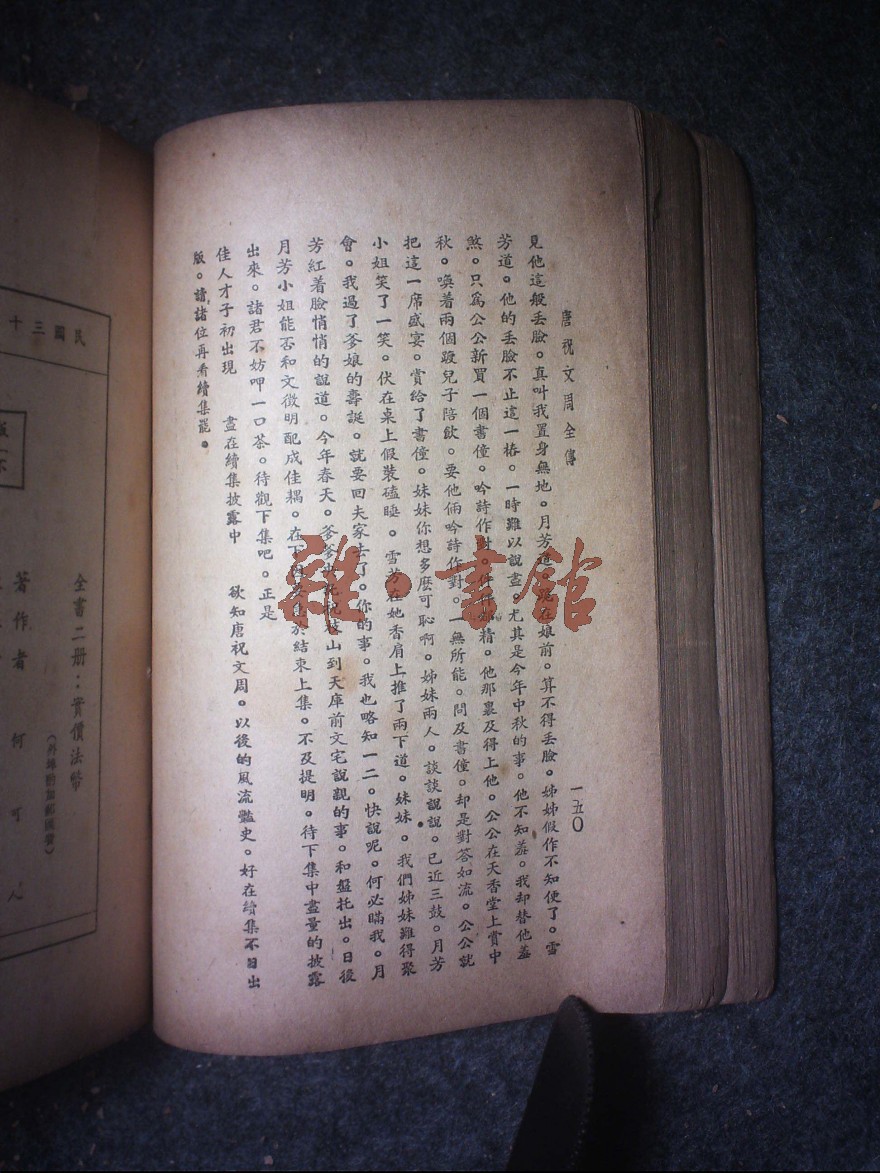 唐祝文周全傳
一五〇
見他這般丟臉。真叫我置身無地。月芳道。跪在娘前。算不得丟臉。姊姊假作不知便了。雪
芳道。他的丟臉不止這一樁。一時難以說盡。尤其是今年中秋的事。他不知羞。我却替他羞
煞。只爲公公新買一個書僮。吟詩作對。件件都精。他那裏及得上他。公公在天香堂上賞中
秋。喚着兩個躄兒子陪飲。要他倆吟詩作對。一無所能。問及書僮。却是對答如流。公公就
把這一席盛宴。賞給了書僮。妹妹你想多麽可恥啊。姊妹兩人。談談說說。已近三鼓。月芳
小姐笑了一笑。伏在桌上假裝磕睡。雪芳在她香肩上推了兩下道。妹妹。我們姊妹難得聚
會。我過了爹娘的壽誕。就要回夫家去了。你的事。我也略知一二。快說呢。何必瞞我。月
芳紅着臉悄悄的說道。今年春天。爹爹 山到天庫前文宅說親的事。和盤托出。日後
月芳小姐能否和文徵明配成佳耦。在下 要 於結束上集。不及提明。待下集中盡量的披露
出來。諸君不妨呷一口茶。待觀下集吧。正是
佳人才子初出現 盡在續集披露中 欲知唐祝文周。以後的風流豔史。好在續集不日出
版。請諸位再看續集罷。
民國三十
版
不
全書二册：實價法幣
（外埠酌加郵匯費）
著作者 何可人
雜·書館